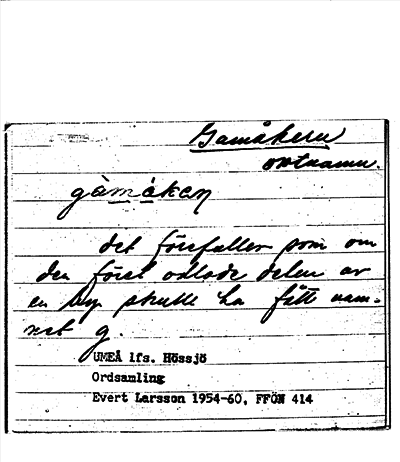 Gamåkern
ortnamn.
gàmåken
det förefaller som om
den först odlade delen av
en by skulle ha fått nam-
net g.
UMEÅ lfs. Hössjö
Ordsamling
Evert Larsson 1954-60, FFÖN 414